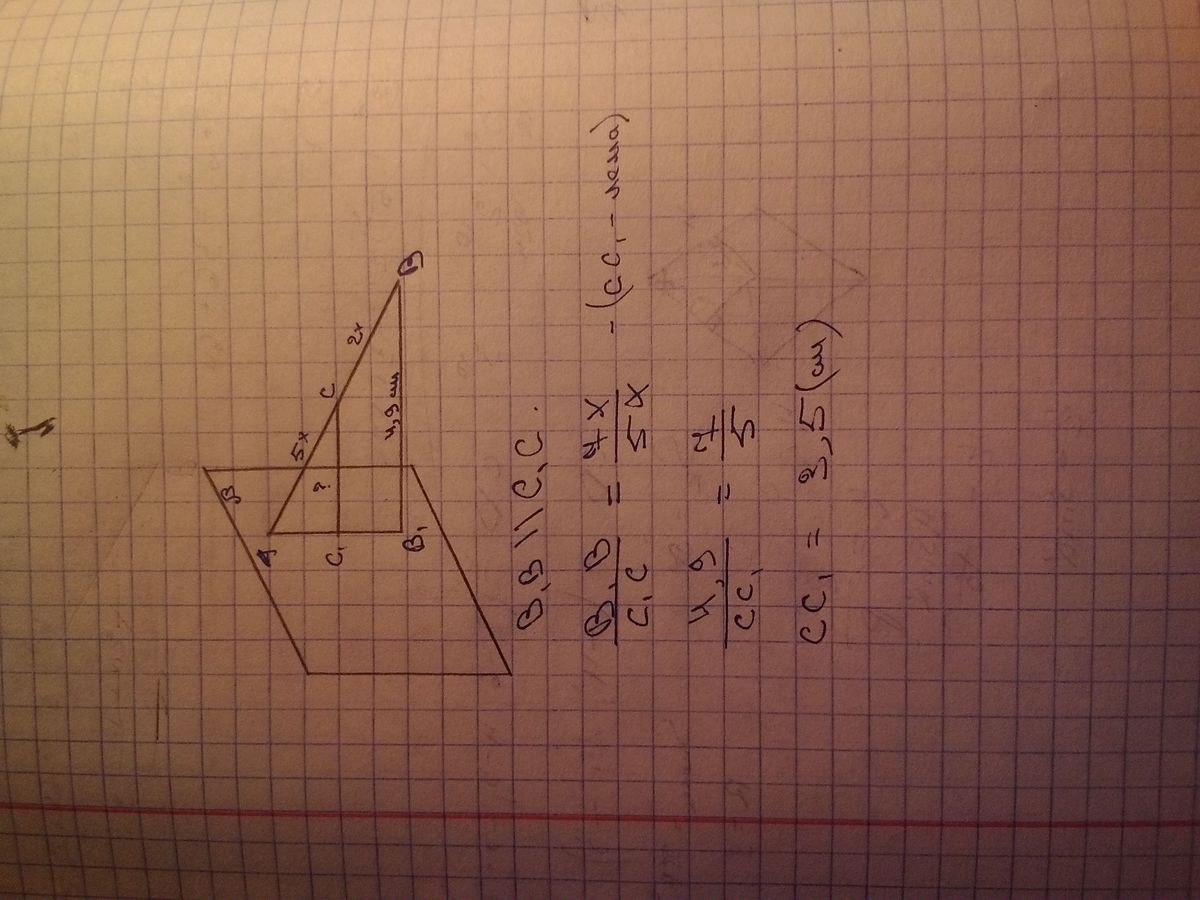 β
A
5x
C
2x
B
C₁
?
B₁
4,9 см
B₁B || C₁C.
B₁B/C₁C = 7x/5x - (CC₁ -
4,9/CC₁ = 7/5
CC₁ = 3,5 (см)